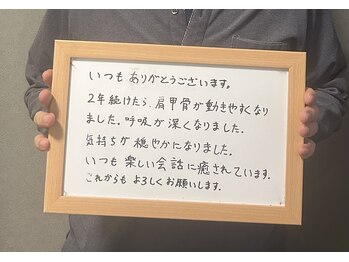 いつもありがとうございます。
2年続けたら、肩甲骨が動きやすくなり
ました。呼吸が深くなりました。
気持ちが穏やかになりました。
いつも楽しい会話に癒されています。
これからもよろしくお願いします。